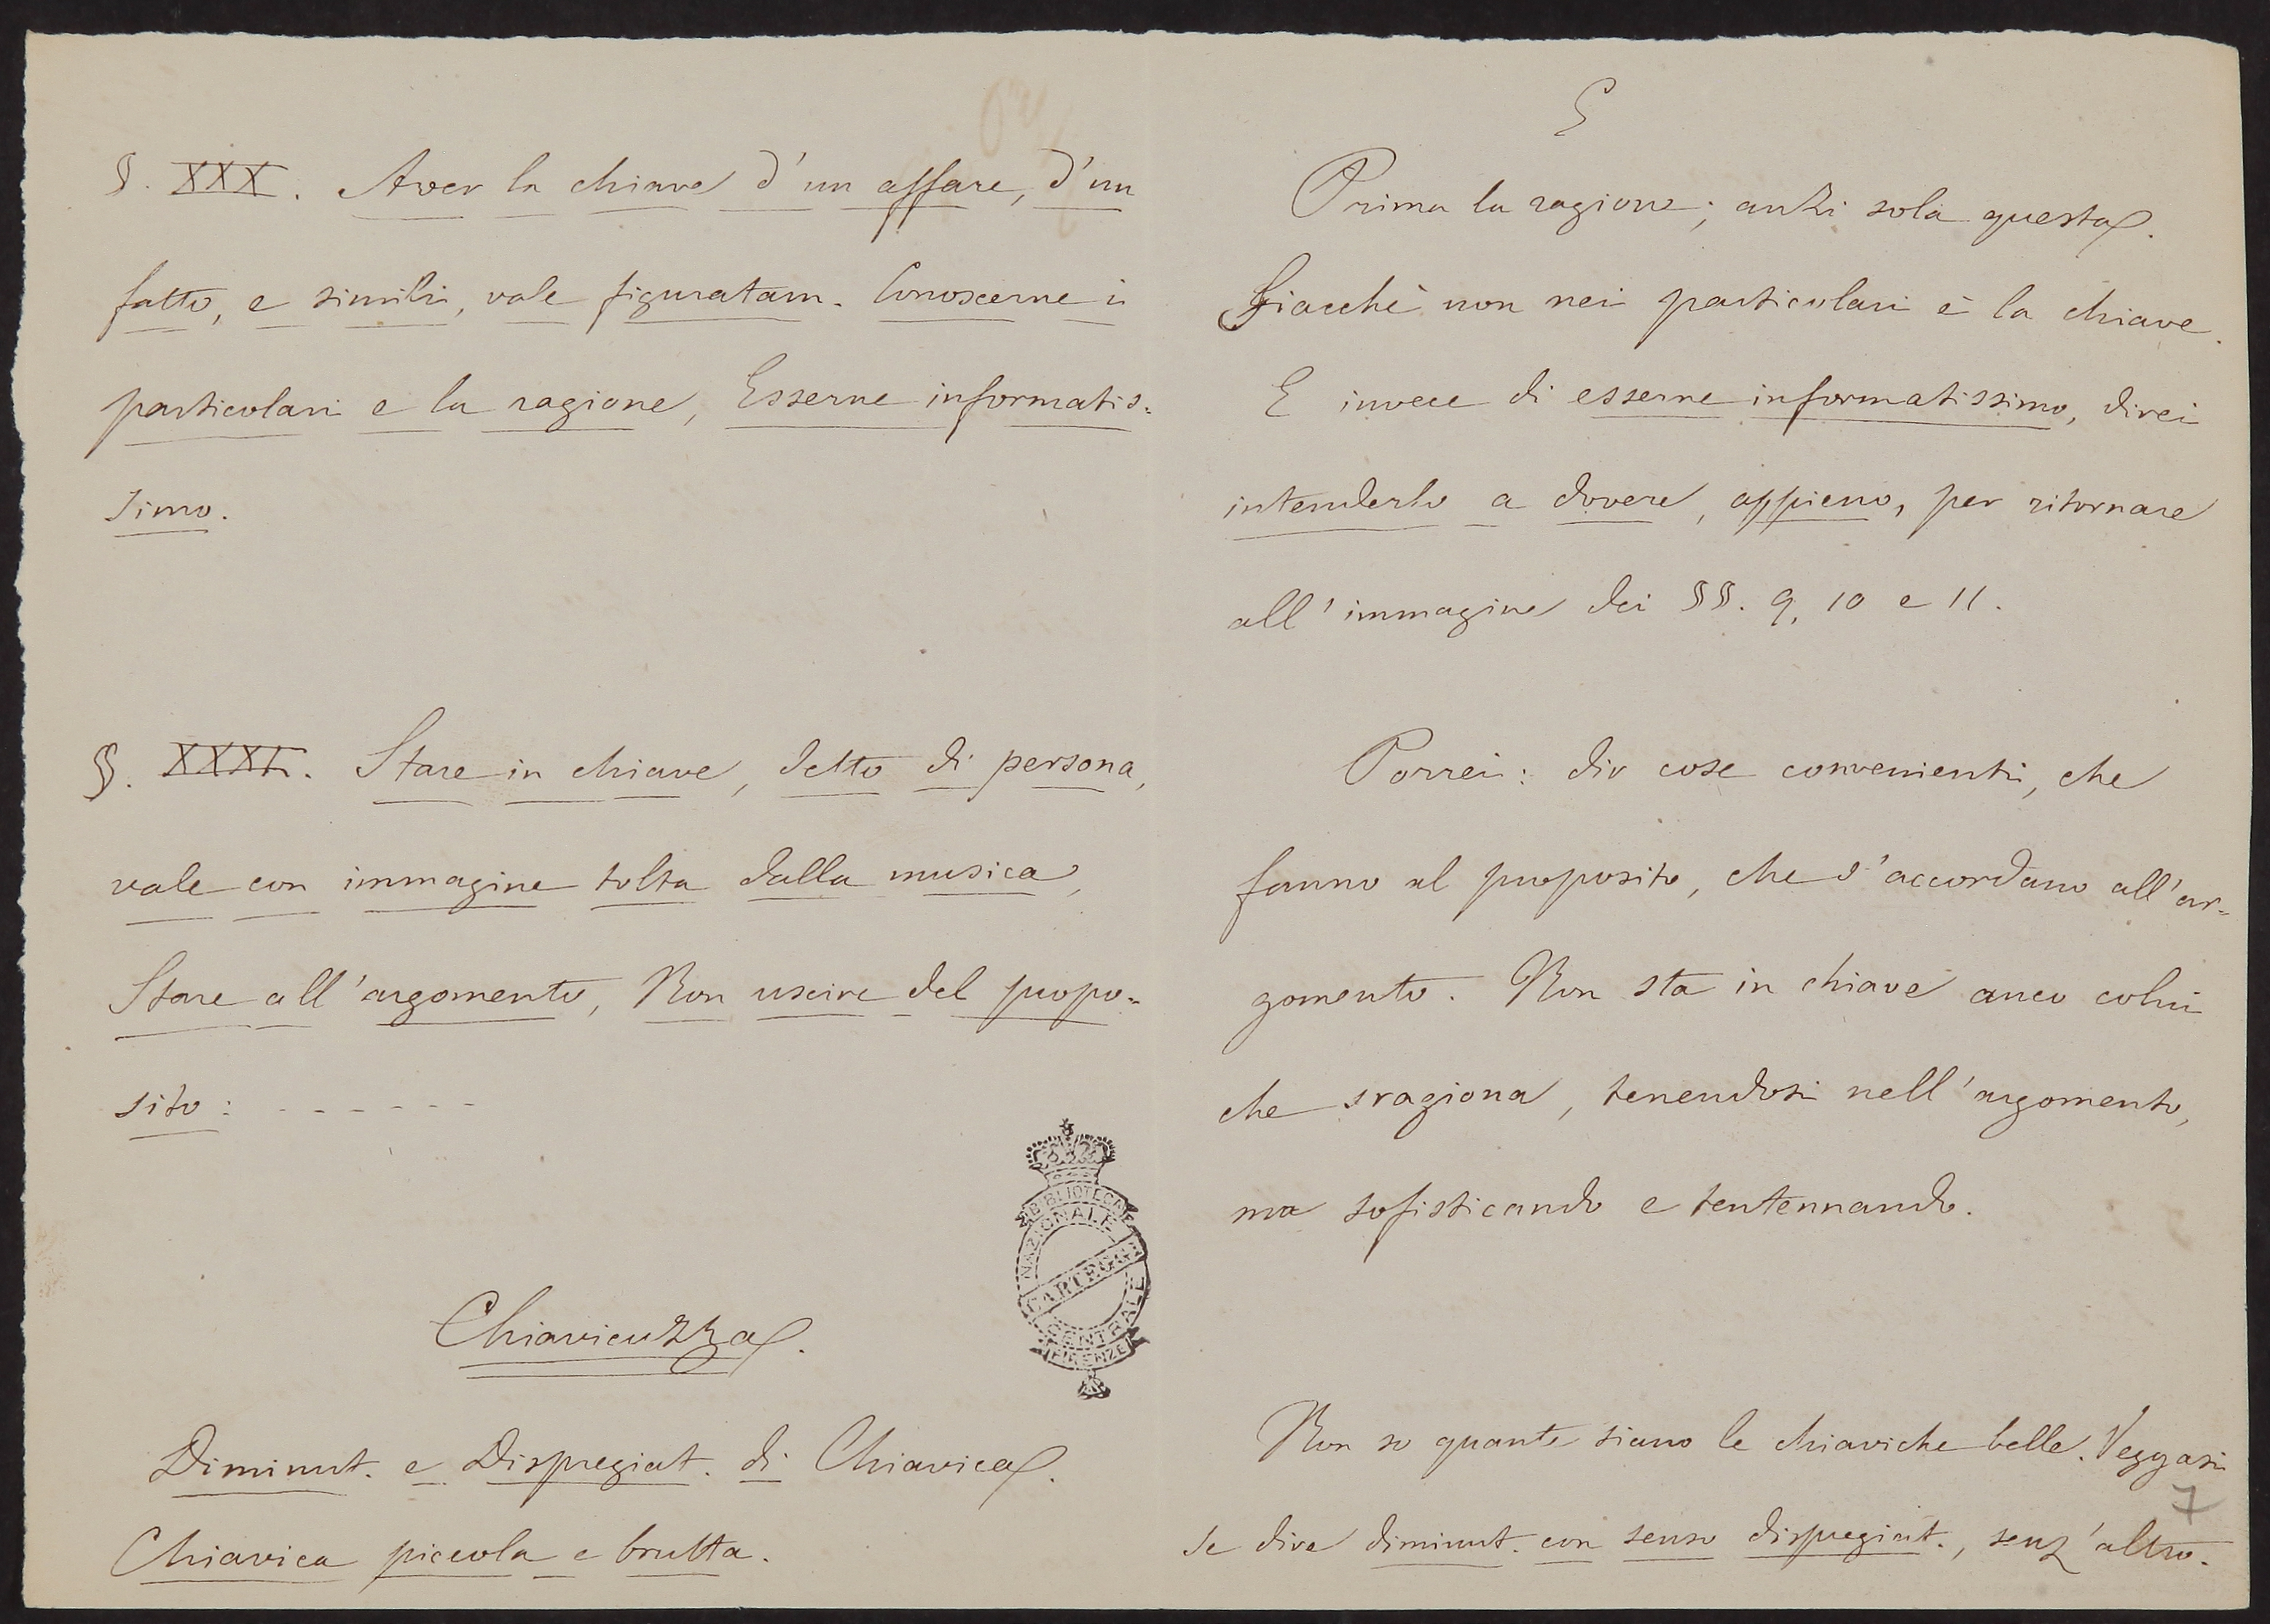 §. XXX. Aver la chiave d'un affare, d'un
fatto, e simili, vale figuratam. Conoscerne i
particolari e la ragione, Esserne informatis-
simo.
§. XXXI. Stare in chiave, detto di persona,
vale con immagine tolta dalla musica,
Stare all'argomento, Non uscire del propo-
sito: - - - - - - -
BIBLIOTECA
NAZIONALE
CARTEGGI
CENTRALE
FIRENZE
Chiavicuzza.
Diminut. e Dispregiat. di Chiavica.
Chiavica piccola e brutta.
Prima la ragione; anzi sola questa.
Giacchè non nei particolari è la chiave.
E invece di esserne informatissimo, direi
intenderlo a dovere, appieno, per ritornare
all'immagine dei §§. 9, 10 e 11.
Porrei: dir cose convenienti, che
fanno al proposito, che s'accordano all'ar-
gomento. Non sta in chiave anco colui
che sragiona, tenendosi nell'argomento,
ma sofisticando e tentennando.
Non so quante siano le chiaviche belle. Veggasi
se dire diminut. con senso dispregiat., senz'altro.
7